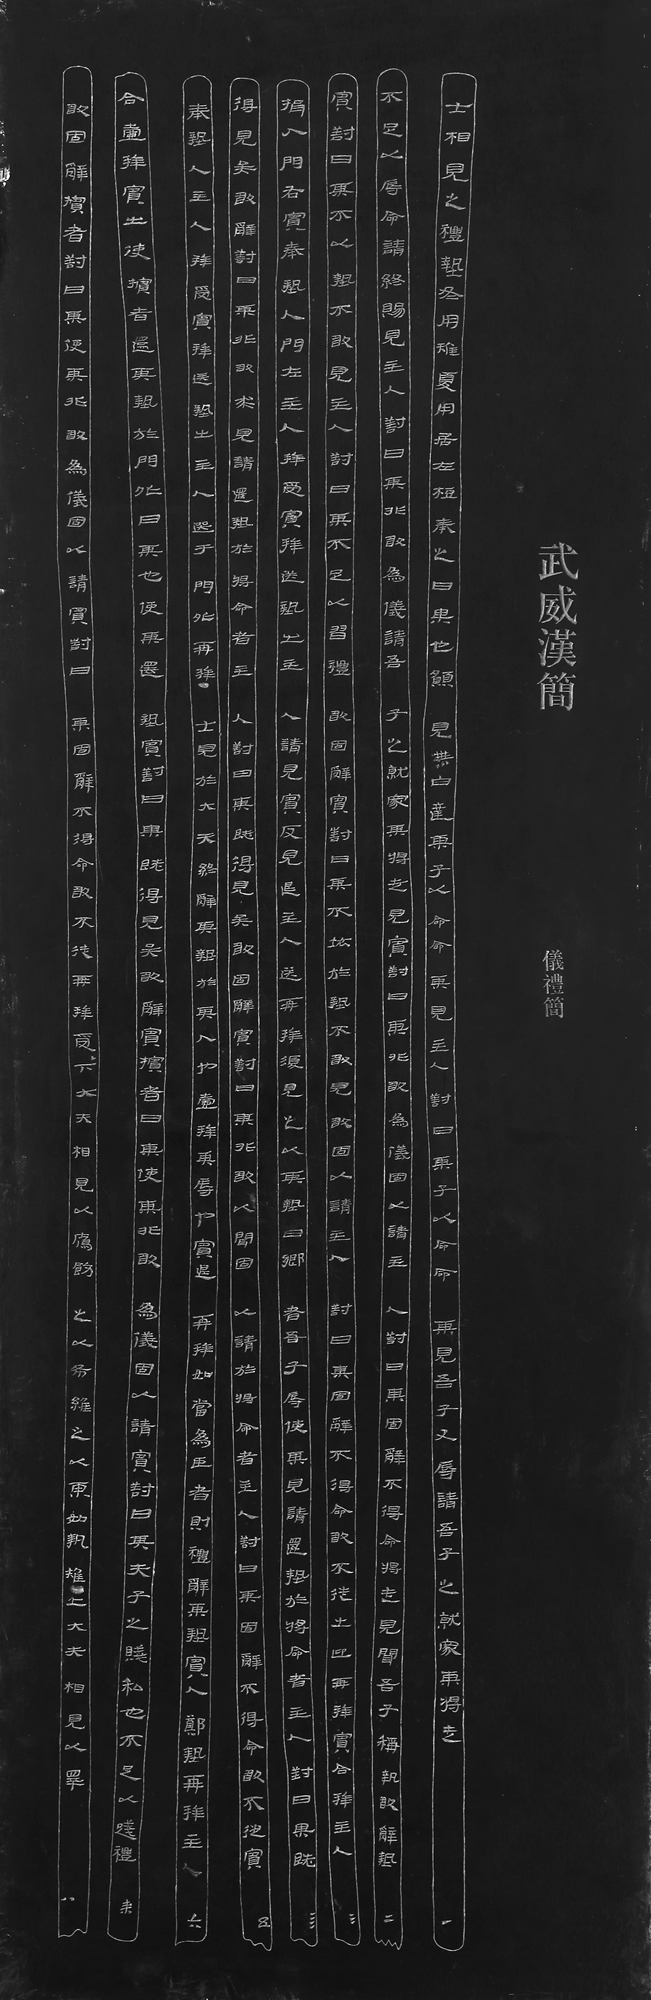 武威漢簡
儀禮簡
士相見之禮墊冬用雉夏用居左桓奉之曰某也願見無由達某子以命命某見主人對曰某子以命命某見吾子又辱請吾子之就家某將走 一
不足以辱命請終賜見主人對曰某非敢為儀請吾子之就家某將走見賓對曰某非敢為儀固以請主人對曰某固辭不得命將走見聞吾子稱執敢辭墊 二
賓對曰某不以墊不敢見主人對曰某不足以習禮敢固辭賓對曰某不依於墊不敢見敢固以請主人對曰某固辭不得命敢不從出迎再拜賓合拜主人 三
揖入門右賓奉墊入門左主人拜受賓拜送墊出主人請見賓反見退主人送再拜須見之以其墊曰鄉者吾子辱使某見請還墊於將命者主人對曰某既 亖
得見矣敢辭對曰某非敢求見請還墊於將命者主人對曰某既得見矣敢固辭賓對曰某非敢以聞固以請於將命者主人對曰某固辭不得命敢不從賓 五
奉墊入主人拜受賓拜送墊出主人送于門外再拜・士見於大夫終辭其墊於其入也壹拜其辱也賓退再拜如嘗為臣者則禮辭其墊賓入鄭墊再拜主人 六
合壹拜賓出使擯者還其墊於門外曰某也使某還墊賓對曰某既得見矣敢辭賓擯者曰某使某非敢為儀固以請賓對曰某夫子之賤私也不足以踐禮 桼
敢固辭擯者對曰某使某非敢為儀固以請賓對曰某固辭不得命敢不從再拜受下大夫相見以鴈飾之以布維之以索如執雉・上大夫相見以羔 八